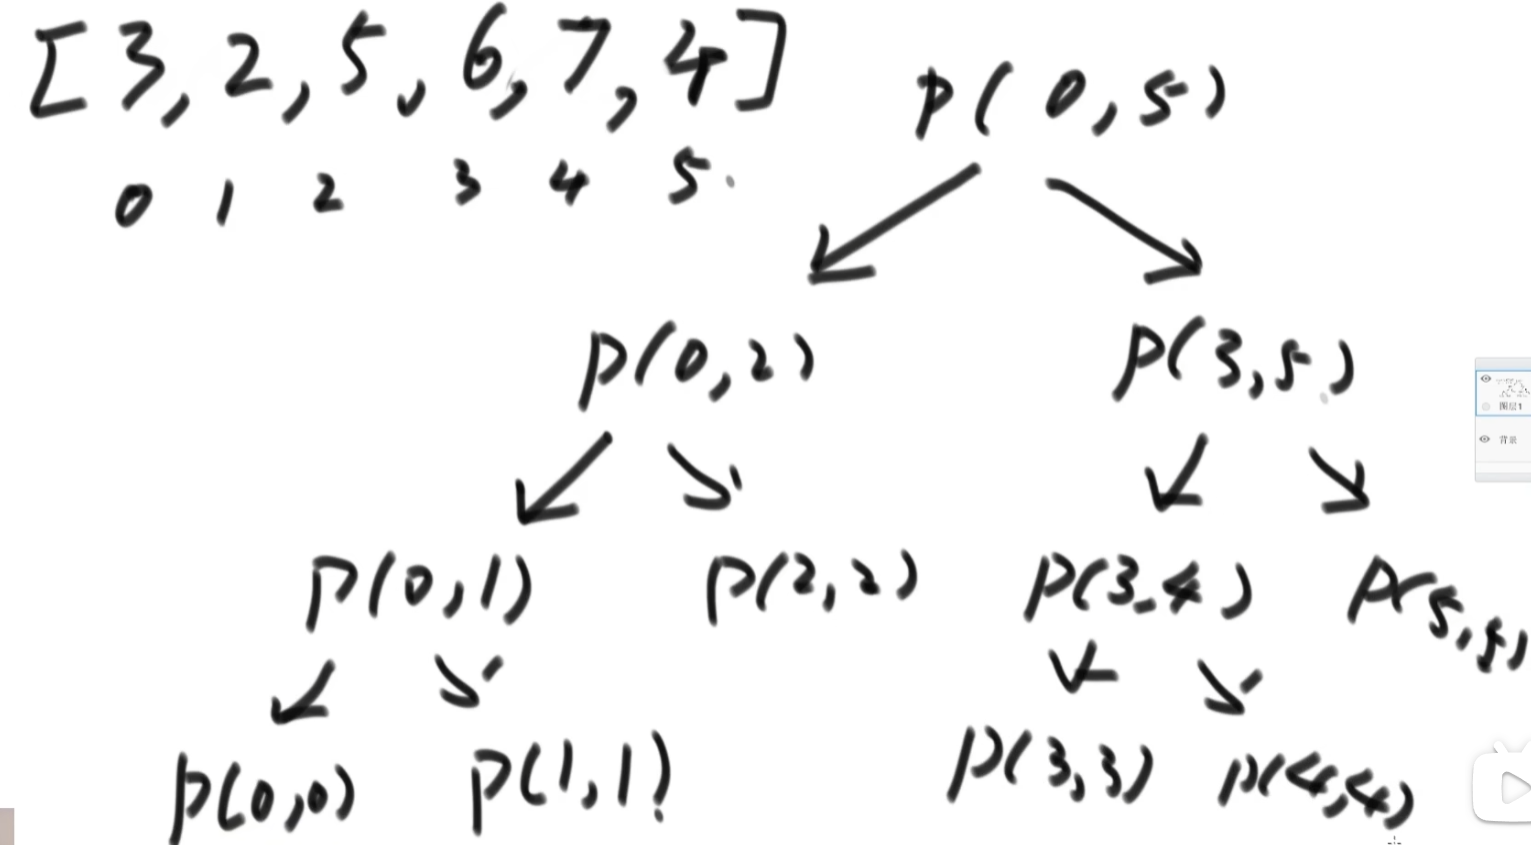 [3, 2, 5, 6, 7, 4]
0 1 2 3 4 5
p(0,5)
p(0,2) p(3,5)
p(0,1) p(2,2) p(3.4) p(5,5)
p(0,0) p(1,1) p(3,3) p(4,4)
图层1
背景